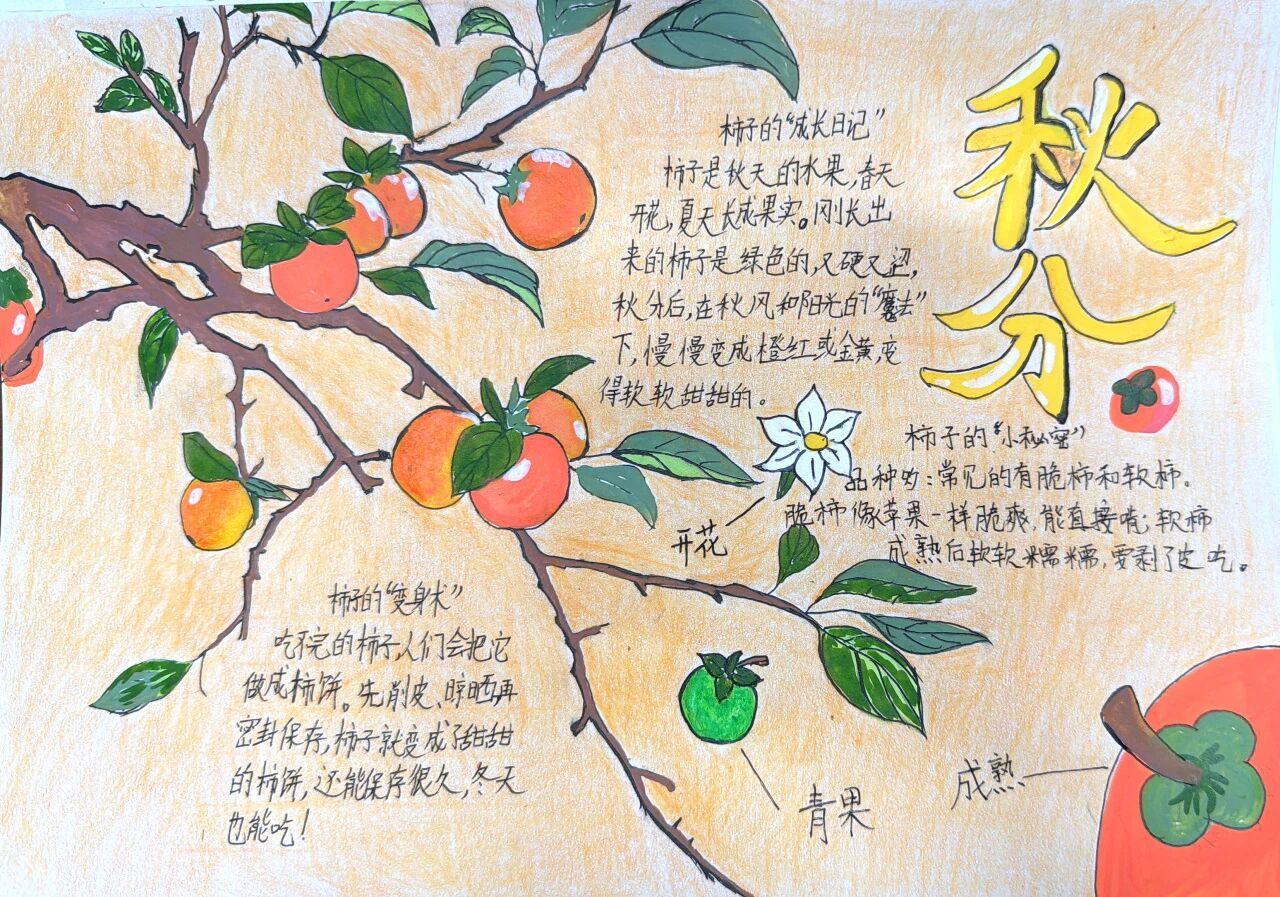 秋分
柿子的“成长日记”
柿子是秋天的水果,春天
开花,夏天长成果实。刚长出
来的柿子是绿色的,又硬又涩,
秋分后,在秋风和阳光的“魔法”
下,慢慢变成橙红或金黄,变
得软软甜甜的。
柿子的“小秘密”
品种多:常见的有脆柿和软柿。
脆柿像苹果一样脆爽,能直接啃;软柿
成熟后软软糯糯,要剥了皮吃。
开花
柿子的“变身术”
吃不完的柿子,人们会把它
做成柿饼。先削皮、晾晒,再
密封保存,柿子就变成了甜甜
的柿饼,还能保存很久,冬天
也能吃!
青果
成熟